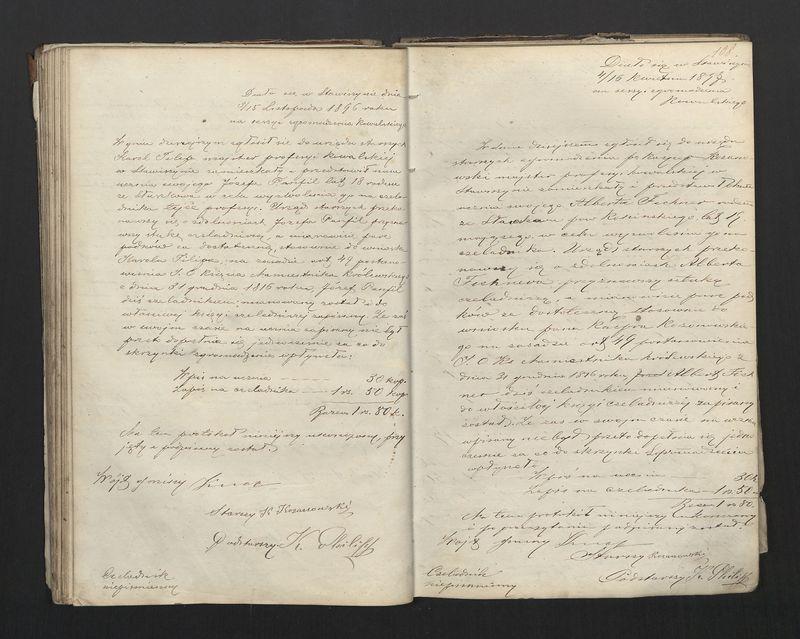 Działo się w Stawiszynie dnia
3/15 Listopada 1896 roku
na sesyi zgromadzenia Kowalskiego
W dniu dzisiejszym zgłosił się do urzędu starszych
Karol Filip majster profesyi kowalskiej
w Stawiszynie zamieszkały i przedstawił nam
ucznia swojego Józefa Panfil lat 18 rodem
ze w celu wyzwolenia go na czela-
dnika tejże profesyi. Urząd starszych przeko-
nawszy się o zdolnościach Józefa Panfila przyzna-
wszy sztukę czeladniczą, a mianowicie parę
podków za dostateczną, stosownie do wniosku
Karola Filipa, na zasadzie art. 49 postano-
wienia J. O. Księcia Namiestnika Królewskiego
z dnia 31 grudnia 1816 roku, Józef Panfil
dziś czeladnikiem mianowany został i do
właściwej księgi czeladniczej zapisany. Że zaś
w swoim czasie na ucznia zapisany nie był
przeto dopełnia się jednocześnie za co do
skrzynki zgromadzenia wpłynęło:
Wpis na ucznia ——— 30 kop.
Zapis na czeladnika — 1 rs. 50 kop.
Razem 1 rs. 80 k.
Na tem protokół niniejszy ukończony, przy-
jęty i podpisany został.
Wójt gminy
Starszy K Kozanowski
Podstarszy K. Philipp
Czeladnik
niepiśmienny
108
Działo się w Stawiszynie
4/16 Kwietnia 1897
na sesyi zgromadzenia
Kowalskiego
W dniu dzisiejszym zgłosił się do urzędu
starszych zgromadzenia Kozanow-
ski majster profesyi kowalskiej w
Stawiszynie zamieszkały i przedstawił
ucznia swojego Alberta Fechner rodem
ze pow. lat 19
mającego, w celu wyzwolenia go na
czeladnika. Urząd starszych przeko-
nawszy się o zdolnościach Alberta
Fechnera, przyznawszy sztukę
czeladniczą, a mianowicie parę pod-
ków za dostateczną, stosownie do
wniosku pana Kacpra Kozanowskie-
go na zasadzie art. 49 postanowienia
J. O. Ks. Namiestnika Królewskiego z
dnia 31 grudnia 1816 roku, Albert Fech-
ner dziś czeladnikiem mianowany i
do właściwej księgi czeladniczej zapisany
został. Że zaś w swoim czasie na ucznia
wpisany nie był, przeto dopełnia się jedno-
cześnie za co do skrzynki zgromadzenia
wpłynęło
Wpis na ucznia — 30 k.
Zapis na czeladnika — 1 rs. 50 —
Razem 1 rs 80.
Na tem protokół niniejszy ukończony
i po przeczytaniu podpisany został.
Wójt gminy
Starszy Kozanowski
Podstarszy K. Philipp
Czeladnik
niepiśmienny